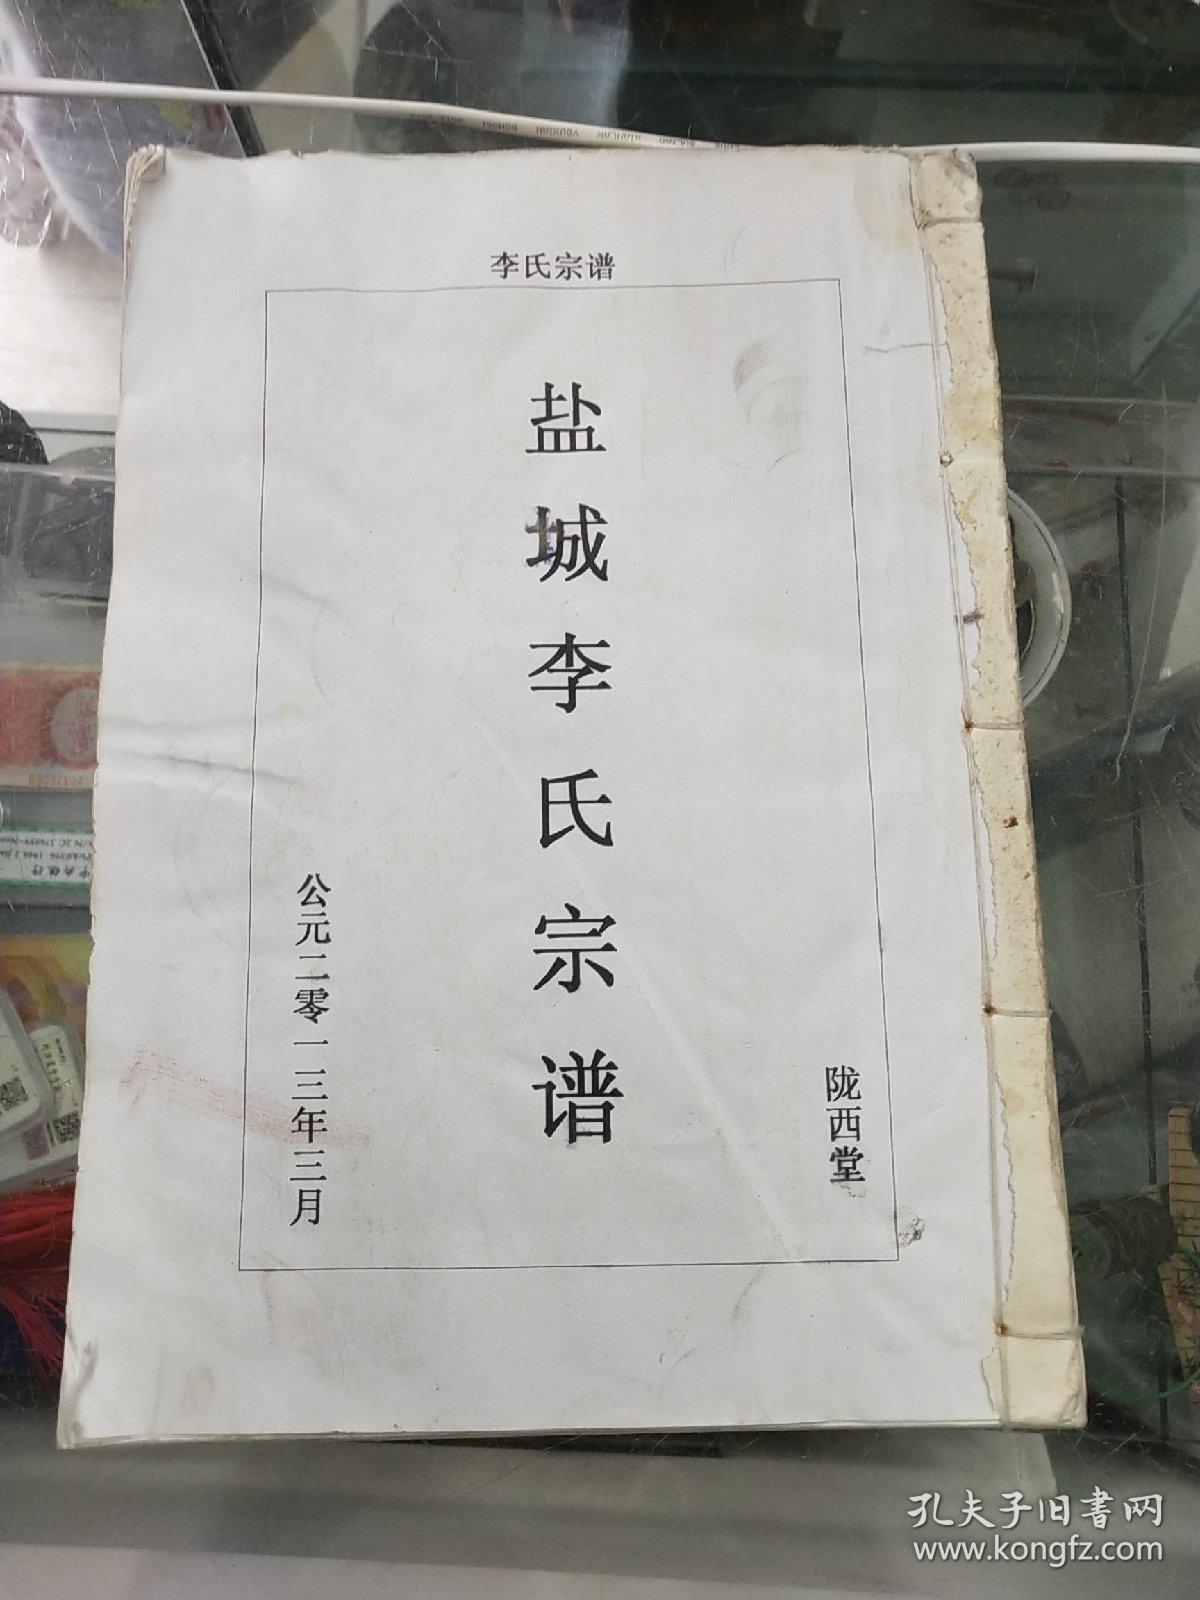 李氏宗谱
陇西堂
盐城李氏宗谱
公元二零一三年三月
孔夫子旧书网
www.kongfz.com